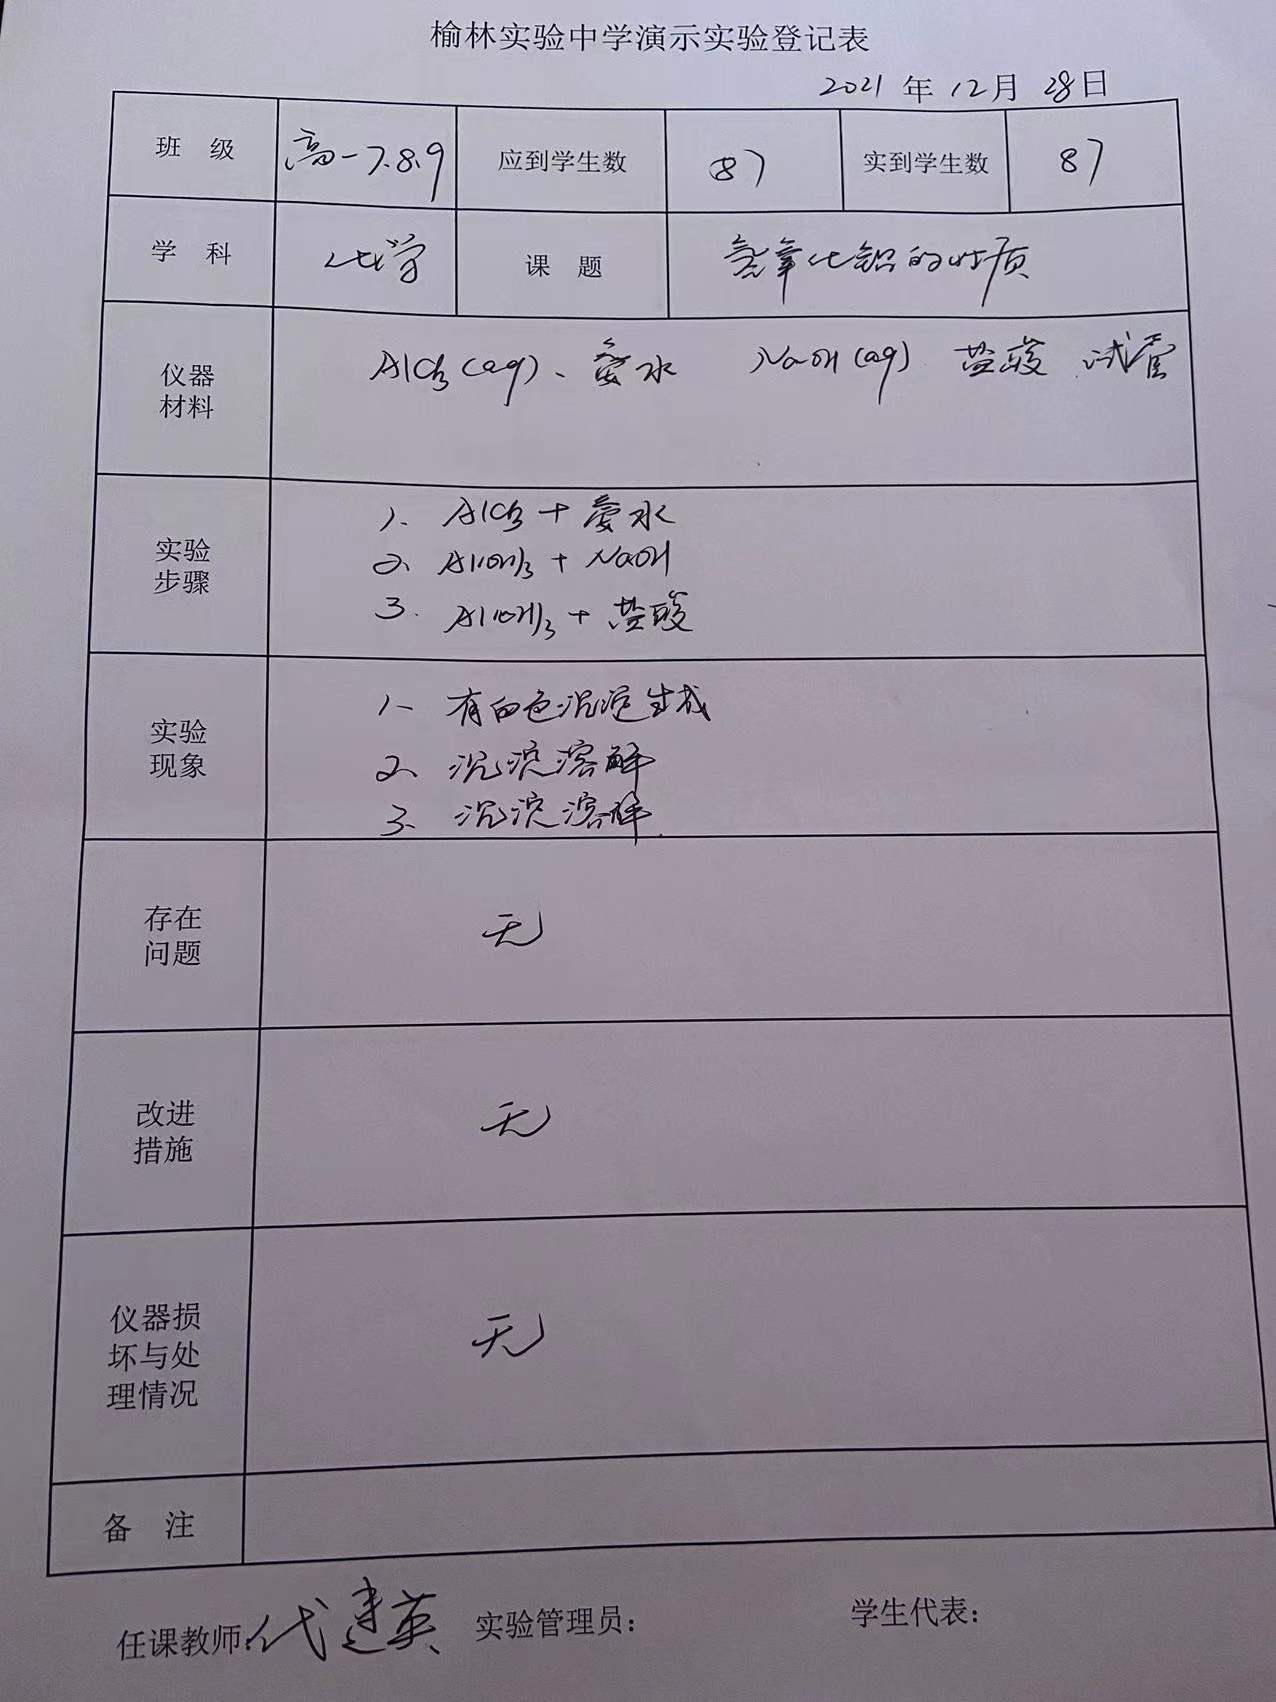 榆林实验中学演示实验登记表
2021 年 12月 28日
班 级 高一7.8.9 应到学生数 87 实到学生数 87
学 科 化学 课 题 氢氧化铝的性质
仪器
材料
AlCl3(aq)、氨水 NaOH(aq) 盐酸 试管
实验
步骤
1、AlCl3 + 氨水
2、Al(OH)3 + NaOH
3. Al(OH)3 + 盐酸
实验
现象
1、有白色沉淀生成
2、沉淀溶解
3、沉淀溶解.
存在
问题
无
改进
措施
无
仪器损
坏与处
理情况
无
备 注
任课教师:代建英 实验管理员: 学生代表: